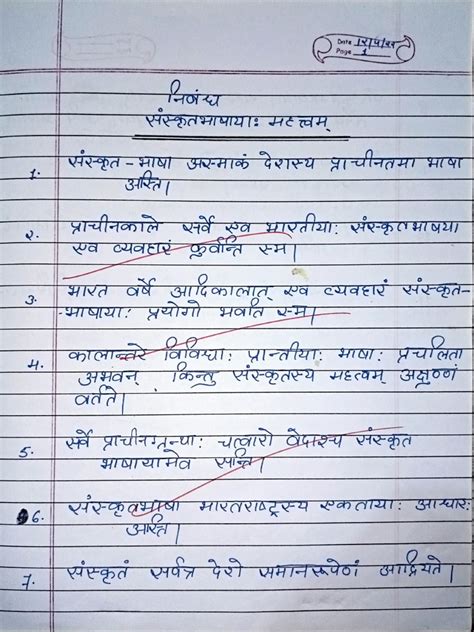 Date 12/4/24
Page 1
निबंध
संस्कृतभाषाया: महत्त्वम्
1. संस्कृत - भाषा अस्माकं देशस्य प्राचीनतमा भाषा
अस्ति।
२. प्राचीनकाले सर्वे एव भारतीया: संस्कृतभाषया
एव व्यवहारं कुर्वन्ति स्म।
3. भारत वर्षे आदिकालात् एव व्यवहारं संस्कृत-
-भाषाया: प्रयोगो भवति स्म।
4. कालान्तरे विविधा: प्रान्तीया: भाषा: प्रचलिता
अभवन् किन्तु संस्कृतस्य महत्वम् अक्षुण्णं
वर्तते।
5. सर्वे प्राचीनग्रन्था: चत्वारो वेदाश्च संस्कृत
भाषायामेव सन्ति।
6. संस्कृतभाषा भारतराष्ट्रस्य एकताया: आधार:
अस्ति।
7. संस्कृतं सर्वत्र देशे समानरूपेणं आद्रियते।